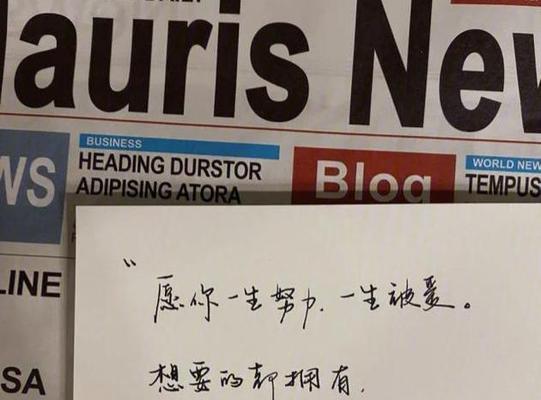 Mauris New
BUSINESS
HEADING DURSTOR
ADIPISING ATORA
Blog
WORLD NEW
TEMPUS
WS
LINE
SA
“
愿你一生努力、一生被爱。
想要的都拥有,